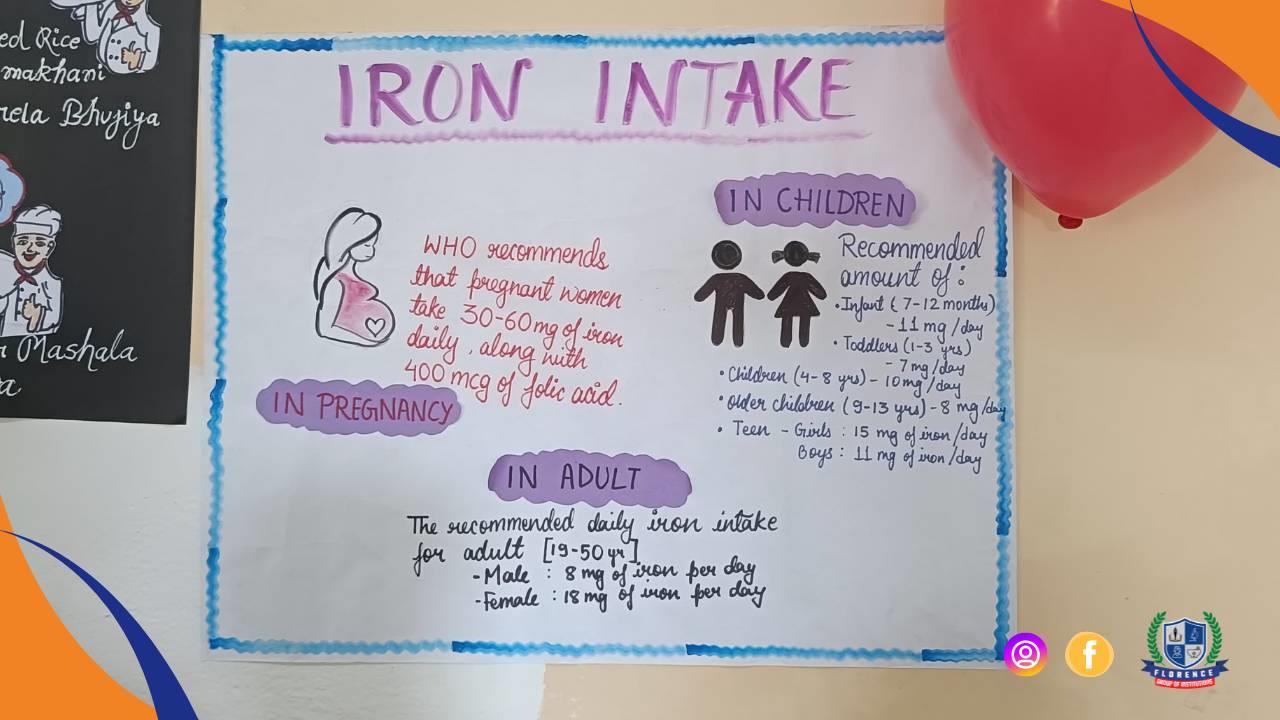 ed Rice
makhani
rela Bhujiya
Mashala
IRON INTAKE
WHO recommends
that pregnant women
take 30-60mg of iron
daily, along with
400 mcg of folic acid.
IN PREGNANCY
IN CHILDREN
Recommended
amount of:
• Infant (7-12 months)
- 11 mg/day
• Toddlers (1-3 yrs)
- 7mg/day
• Children (4-8 yrs) - 10mg/day
• Older children (9-13 yrs) - 8 mg/day
• Teen - Girls : 15 mg of iron/day
Boys : 11 mg of iron/day
IN ADULT
The recommended daily iron intake
for adult [19-50 yr]
- Male : 8 mg of iron per day
- Female : 18 mg of iron per day
FLORENCE
GROUP OF INSTITUTIONS